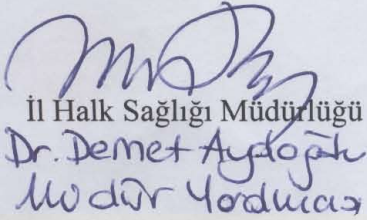 İl Halk Sağlığı Müdürlüğü
Dr. Demet Aydoğan
Müdür Yardımcısı